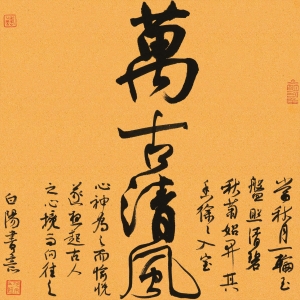 萬古清風
當秋月一輪玉
盤照清碧
秋菊始開其
香徐徐入室
心神為之而愉悅
遂想起古人
之心境而向往之
白陽書意